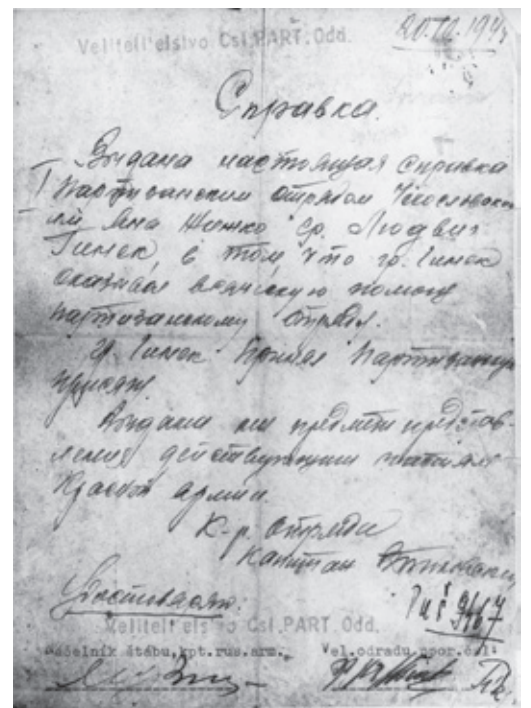 Velitelství Csl.PART.Odd.
Справка.
Выдана настоящая справка
Партизанским отрядом Чехословакии
им Яна Жижко гр. Людвиг
Гинек, в том что гр. Гинек
оказывал всяческую помощь
партизанскому отряду.
гр. Гинек принял Партизанскую
присягу
Выдана на предмет представ-
ления действующим частям
Красной армии.
К-р. отряда
капитан
Удостоверяю:
Velitelství Csl.PART.Odd.
Náčelník štábu,kpt.rus.arm.. Vel.odradu,npor.čsl: